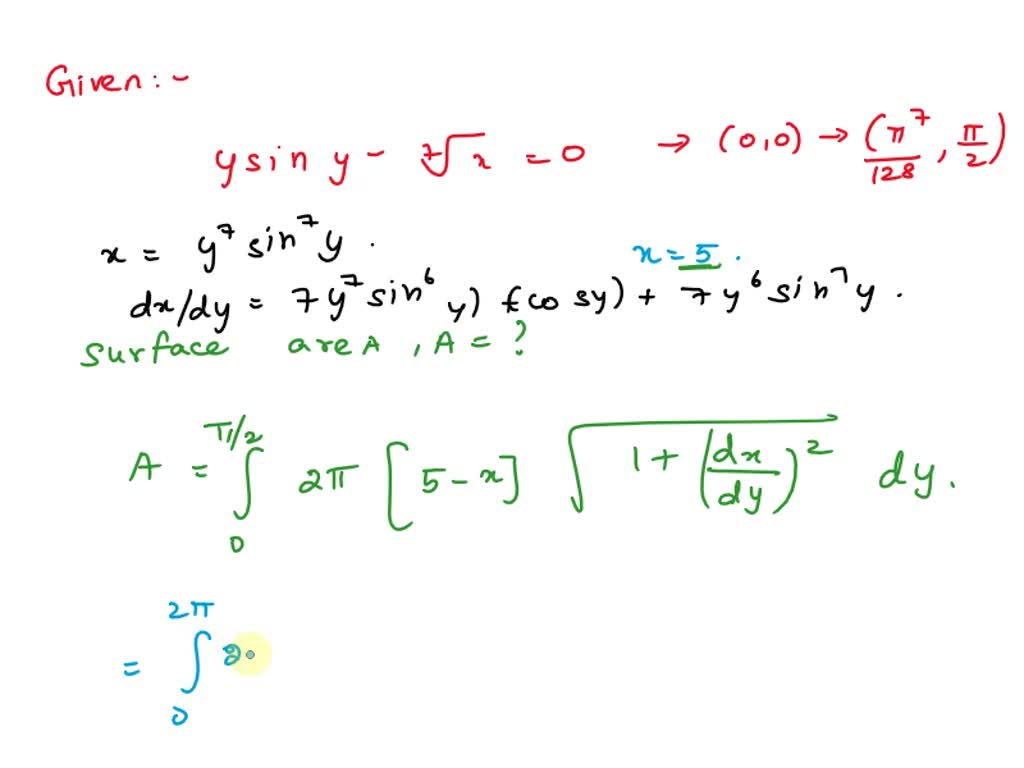 Given:-
y sin y - ⁷√x = 0 → (0,0) → (π⁷/128, π/2)
x = y⁷ sin⁷ y .
x = 5 .
dx/dy = 7y⁷ sin⁶ y) (cos y) + 7y⁶ sin⁷ y .
surface area, A = ?
A = ∫₀^(π/2) 2π [5 - x] √(1 + (dx/dy)²) dy.
= ∫₀^(2π) 2